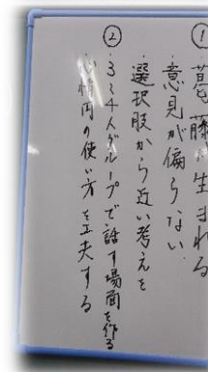 ①
葛藤が生まれる
意見が偏らない
選択肢から近い考えを
②
・3~4人グループで話す場面を作る
円の使い方を工夫する